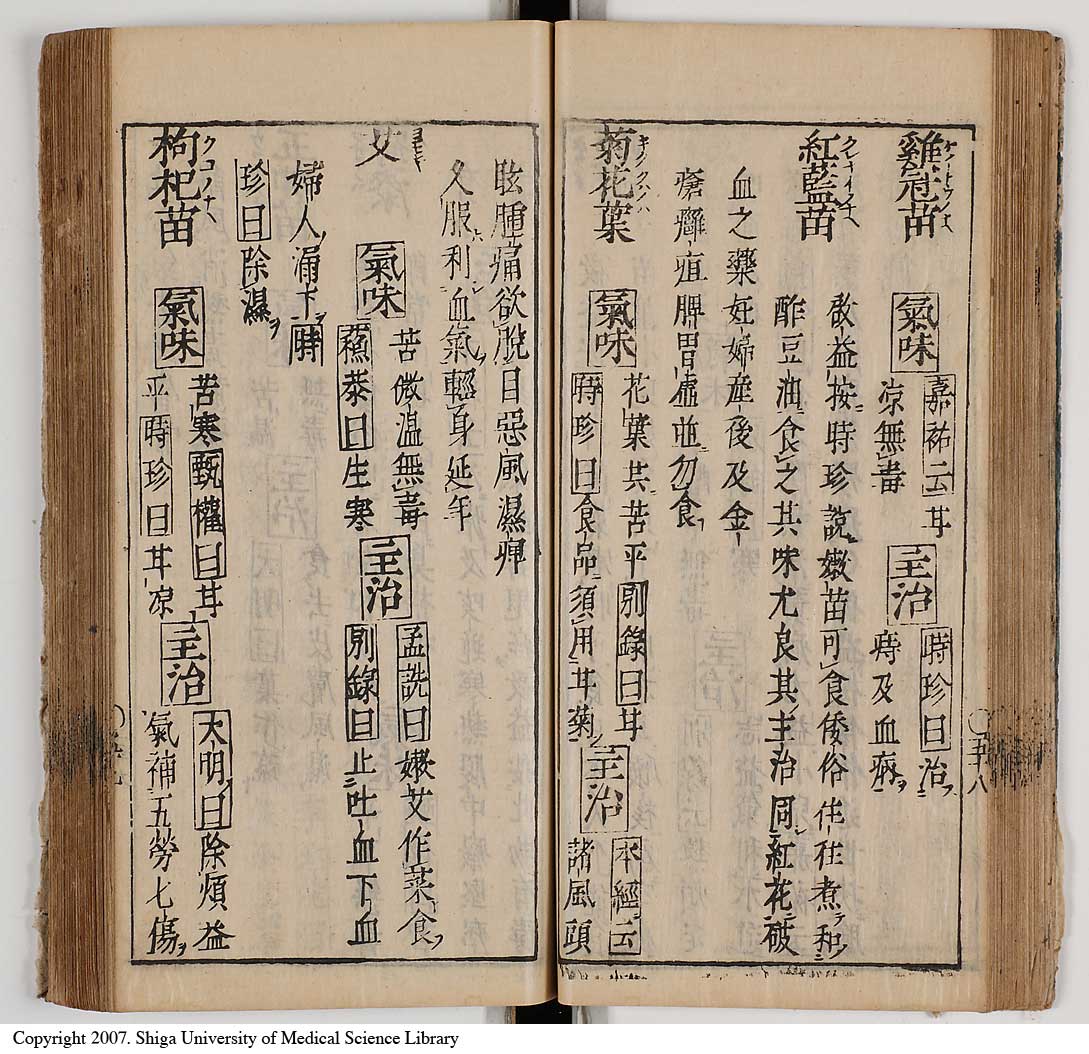 雞冠苗 氣味 嘉祐云甘
凉無毒 主治 時珍曰治
痔及血病ヲ
紅藍苗 敢益按時珍說嫩苗可食倭俗往往煮和
酢豆油食之其味尤良其主治同紅花破
血之藥妊婦產後及金
瘡癰疽脾胃虛並勿食
菊花葉 氣味 花葉共苦平別錄曰甘
時珍曰食品須用甘菊 主治 本經云
諸風頭
眩腫痛欲脫目惡風濕痹
久服利血氣輕身延年
艾 氣味 苦微溫無毒
蘓恭曰生寒 主治 孟詵曰嫩艾作菜食
別錄曰止吐血下血
婦人漏下時
珍曰除濕
クコノナヘ
枸杞苗 氣味 苦寒甄權曰甘
平時珍曰甘凉 主治 大明曰除煩益
氣補五勞七傷
五十八
Copyright 2007. Shiga University of Medical Science Library